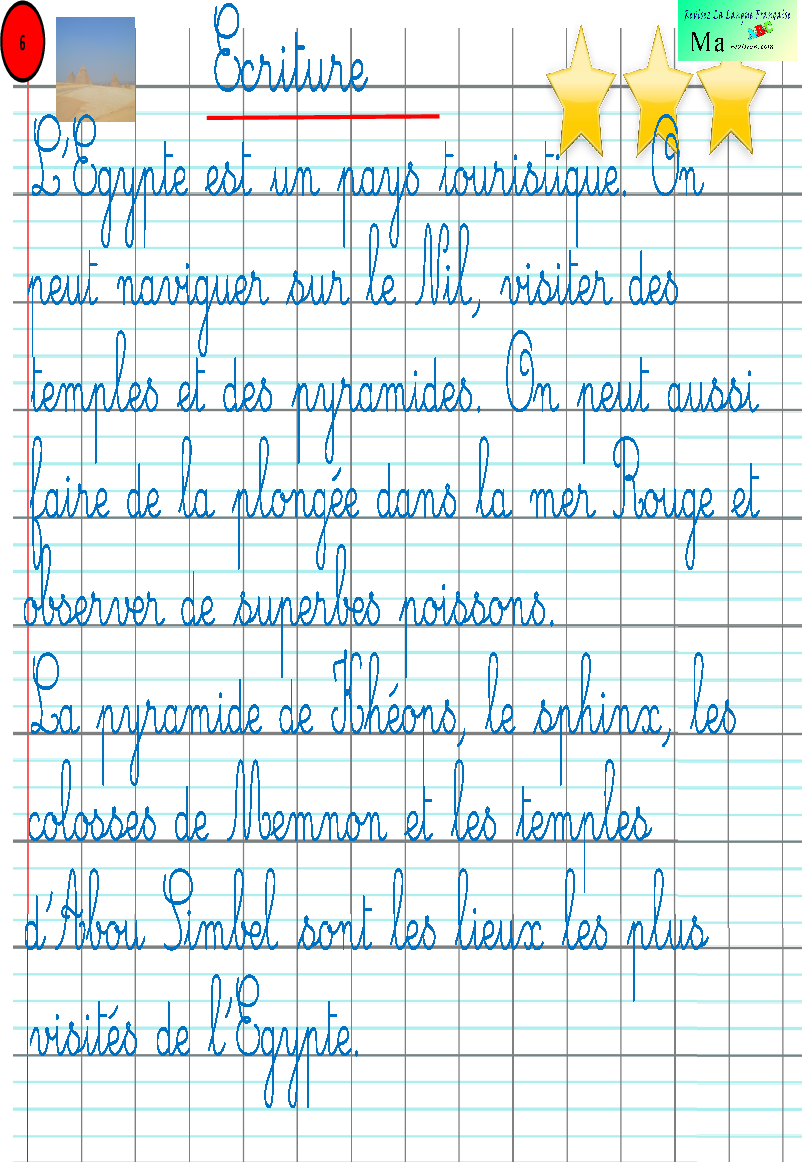 6
Ecriture
Revisez La Langue Française
Ma
L'Egypte est un pays touristique. On
peut naviguer sur le Nil, visiter des
temples et des pyramides. On peut aussi
faire de la plongée dans la mer Rouge et
observer de superbes poissons.
La pyramide de Khéops, le sphinx, les
colosses de Memnon et les temples
d'Abou Simbel sont les lieux les plus
visités de l'Egypte.